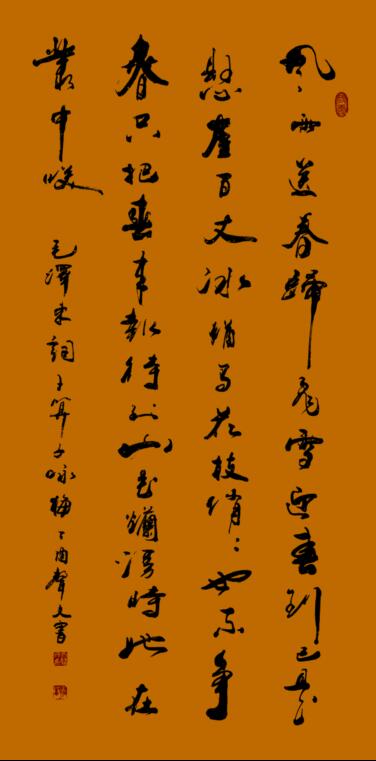 風雨送春歸飛雪迎春到已是
懸崖百丈冰猶有花枝俏〻也不争
春只把春来報待到山花爛漫時她在
叢中咲
毛澤東詞卜算子咏梅丁酉聲書